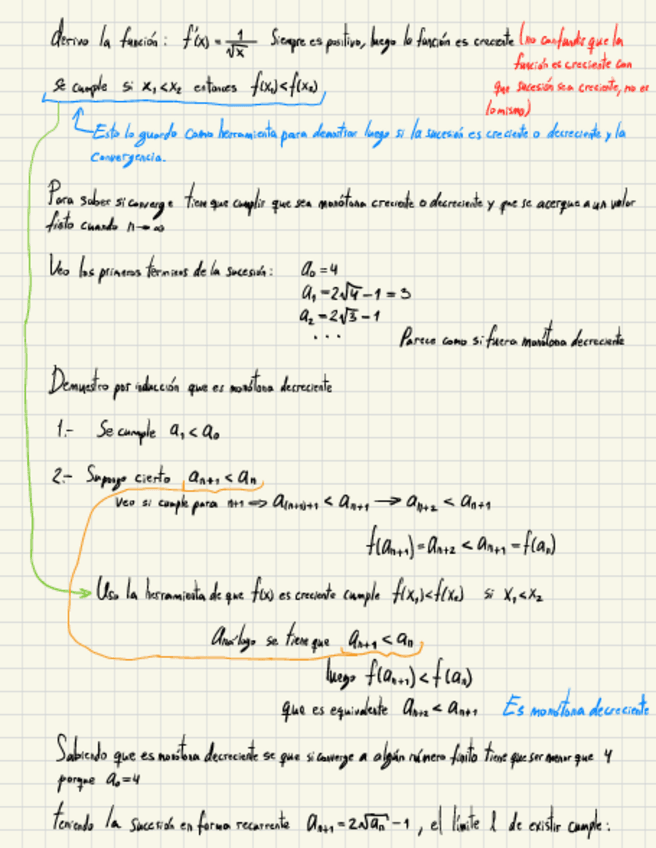 derivo la función: f'(x) = 1/√x Siempre es positivo, luego la función es creciente (no confundir que la
función es creciente con
que sucesión sea creciente, no es
lo mismo)
se cumple si x₁<x₂ entonces f(x₁)<f(x₂)
Esto lo guardo como herramienta para demostrar luego si la sucesión es creciente o decreciente y la
convergencia.
Para saber si converge tiene que cumplir que sea monótona creciente o decreciente y que se acerque a un valor
finito cuando n→∞
Veo los primeros términos de la sucesión: a₀=4
a₁=2√4-1=3
a₂=2√3-1
...
Parece como si fuera monótona decreciente
Demuestro por inducción que es monótona decreciente
1.- Se cumple a₁<a₀
2.- Supongo cierto aₙ₊₁<aₙ
veo si cumple para n+1 ⇒ a₍ₙ₊₁₎₊₁<aₙ₊₁ → aₙ₊₂<aₙ₊₁
f(aₙ₊₁)=aₙ₊₂<aₙ₊₁=f(aₙ)
Uso la herramienta de que f(x) es creciente cumple f(x₁)<f(x₂) si x₁<x₂
Análogo se tiene que aₙ₊₁<aₙ
luego f(aₙ₊₁)<f(aₙ)
que es equivalente aₙ₊₂<aₙ₊₁ Es monótona decreciente
Sabiendo que es monótona decreciente se que si converge a algún número finito tiene que ser menor que 4
porque a₀=4
teniendo la sucesión en forma recurrente aₙ₊₁=2√aₙ-1, el límite l de existir cumple: